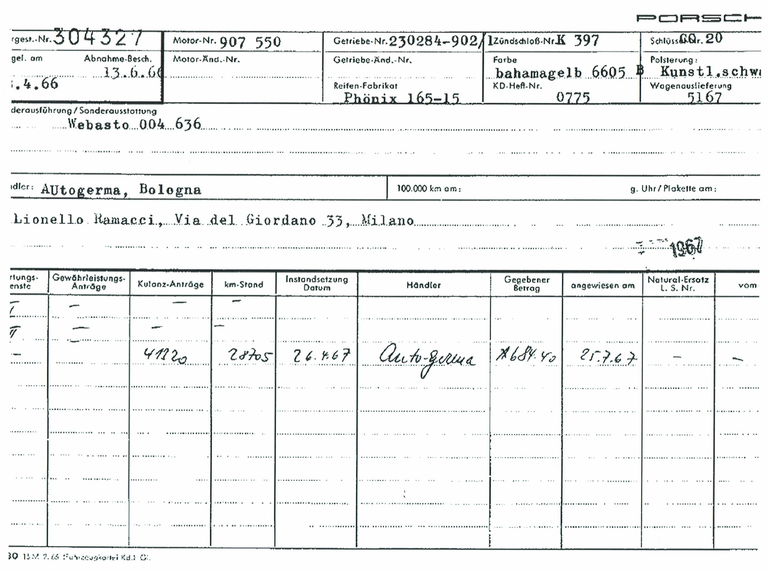 PORSCH
rgest.-Nr. 304327 Motor-Nr. 907 550 Getriebe-Nr. 230284-902/1 Zündschloß-Nr. K 397 Schlüssel-Nr. 20
gel. am Abnahme-Besch. Motor-Änd.-Nr. Getriebe-Änd.-Nr. Farbe Polsterung:
.4.66 13.6.66 bahamagelb 6605 B Kunstl.schwa
Reifen-Fabrikat KD-Heft-Nr. Wagenauslieferung
Phönix 165-15 0775 5167
derausführung / Sonderausstattung
Webasto 004 636
dler: AUtogerma, Bologna 100.000 km am: g. Uhr / Plakette am:
Lionello Ramacci, Via del Giordano 33, Milano
1967
tungs- Gewährleistungs- Kulanz-Anträge km-Stand Instandsetzung Händler Gegebener angewiesen am Natural-Ersatz vom
enste Anträge Datum Betrag L. S. Nr.
I — — —
II — — —
— 41220 28705 26.4.67 Auto-germa 684.40 25.7.67 — —